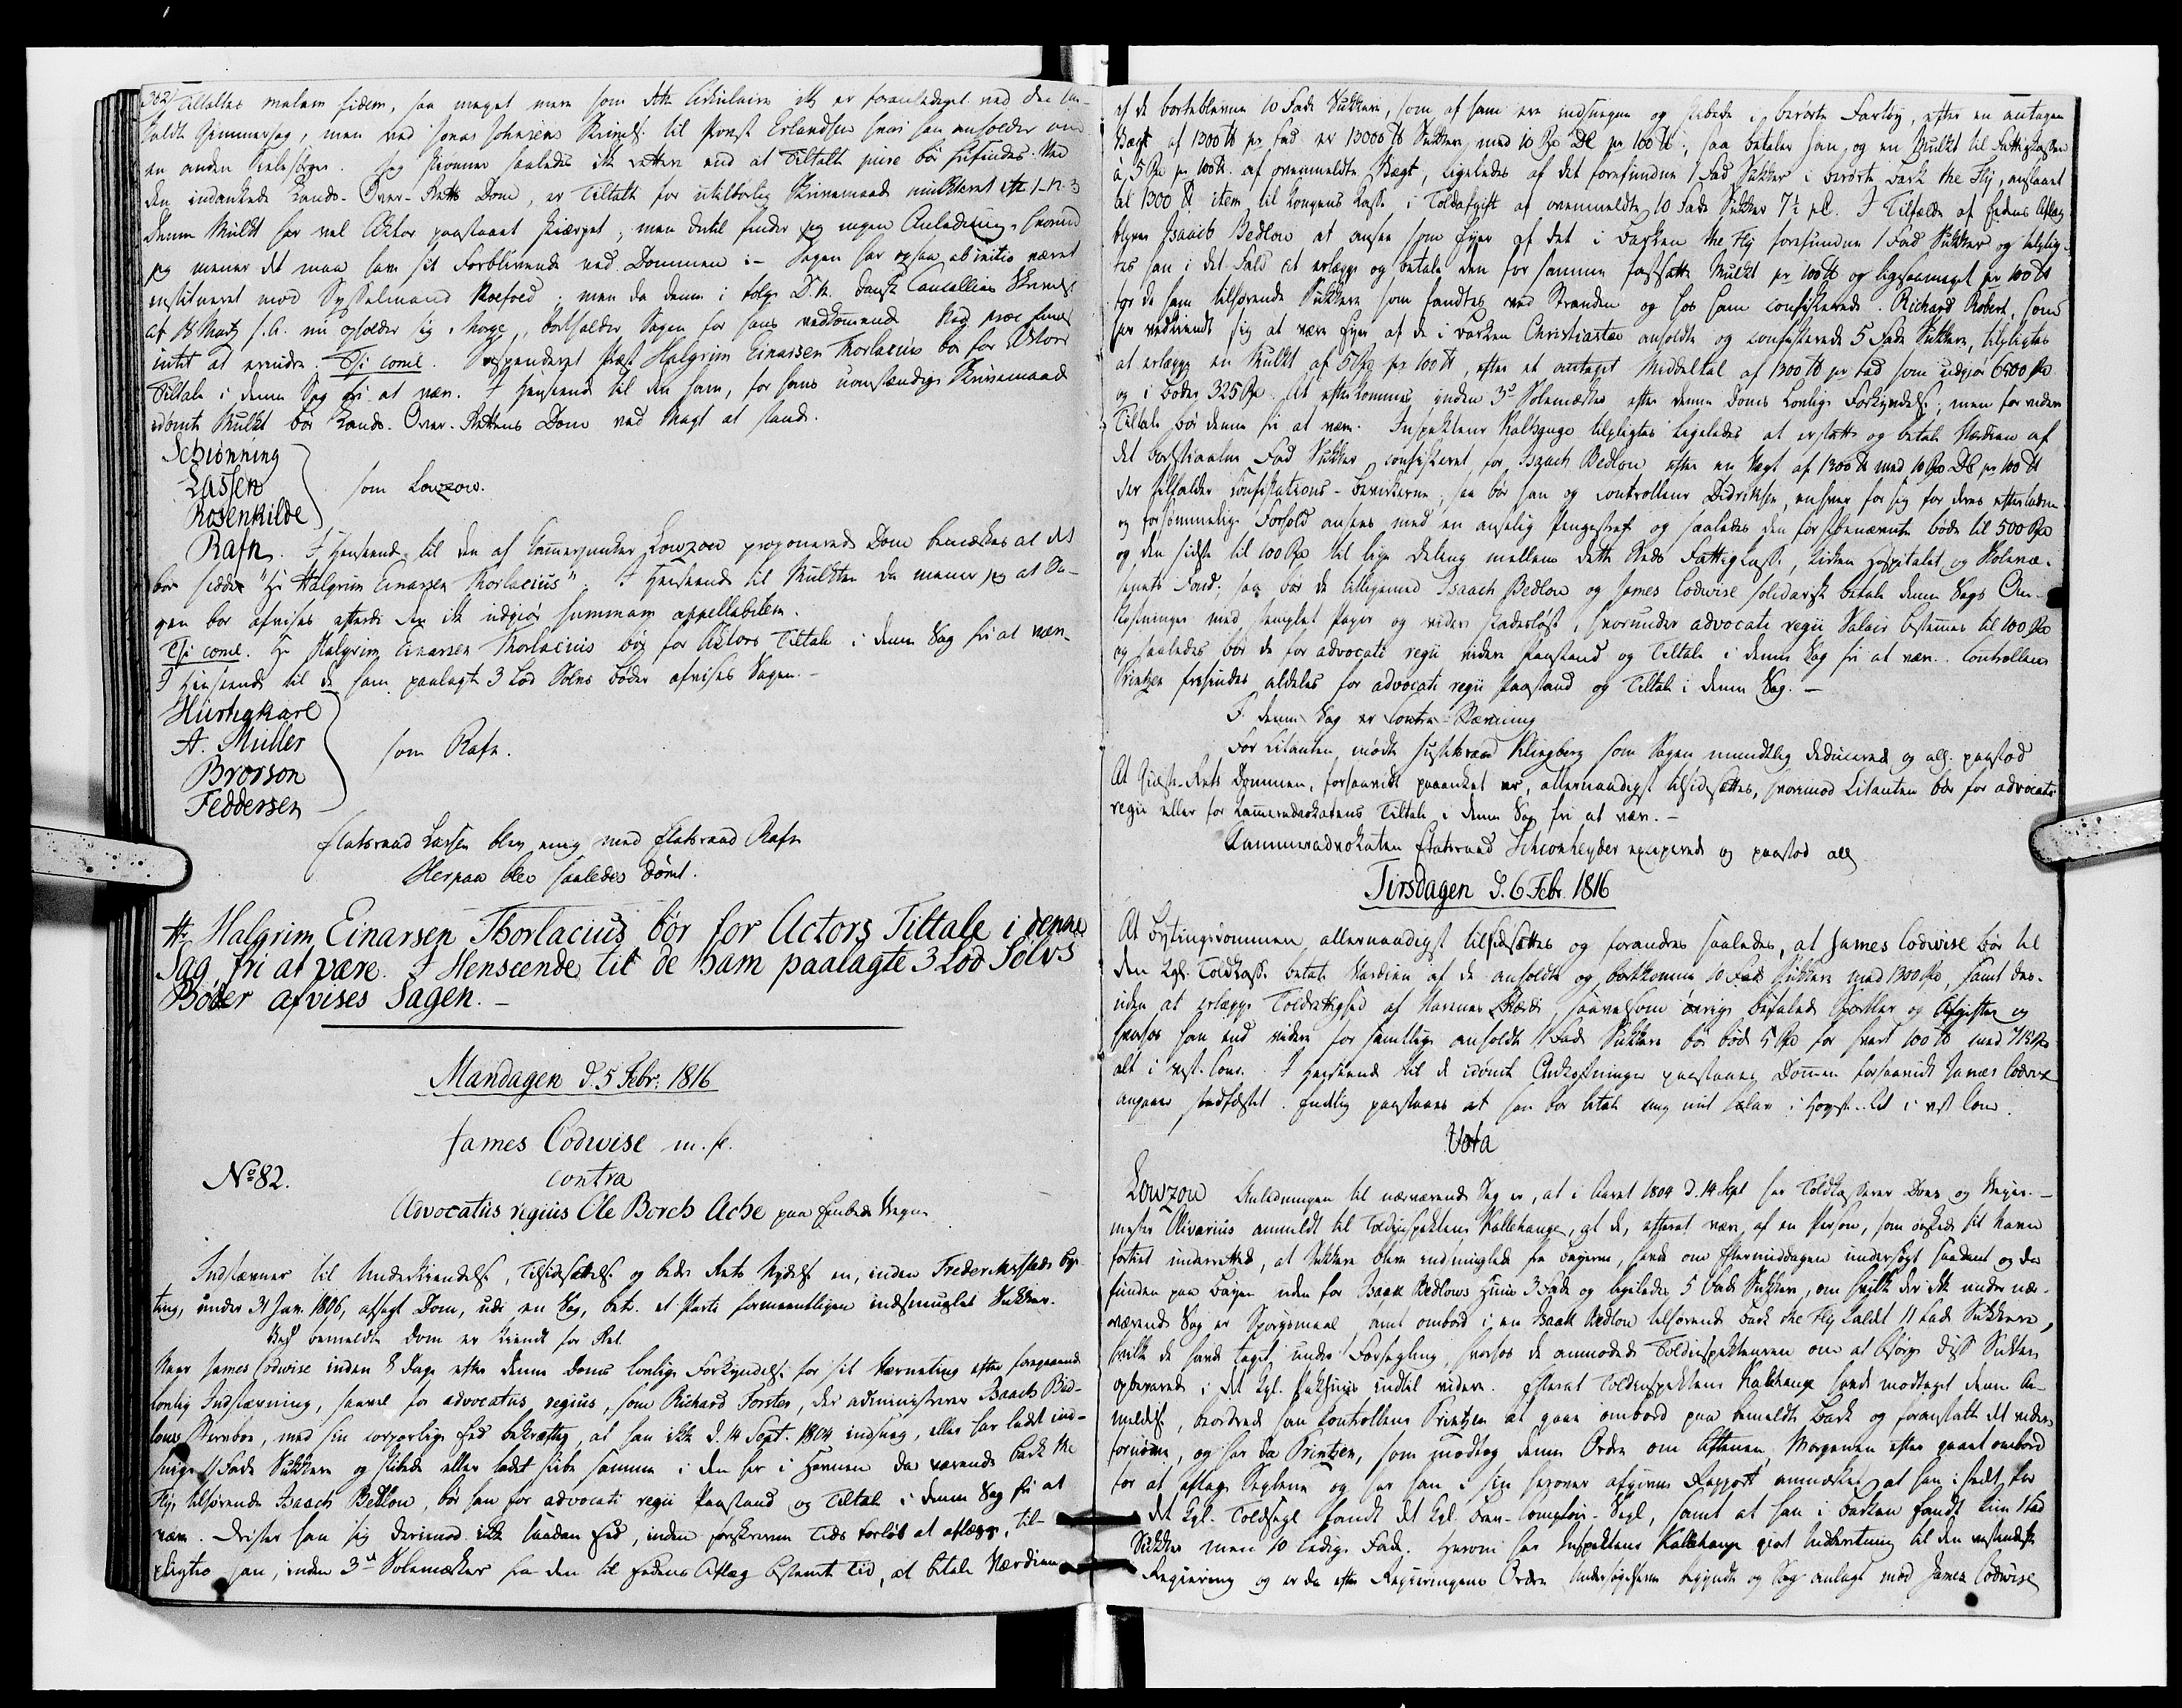 362
Tiltaltes malam fidem, saa meget mere som dette Cirkulaire ikke er foranlediget ved den
men ved Jonas Johnsens Skrivelse til Provst Erlandsen hvori han anholder om
en anden Siælesørger. Jeg skiønner saaledes ikke rettere end at Tiltalte pure bør frifindes. Ved
den indankede Lands-Over-Retts Dom, er Tiltalte for utilbørlig Skrivemaade mulkteret efter 1-12-3
Denne Mulkt har vel Aktor paastaaet skiærpet; men dertil finder jeg ingen Anledning, hvorimod
jeg mener det maa have sit Forblivende ved Dommen :- Sagen har ogsaa ab initio været
institueret mod Sysselmand Koefoed; men da denne i følge D. K. danske Cancellies Skrivelse
af Marts s. A. nu opholder sig i Norge, bortfalder Sagen for hans vedkommende
intet at erindre. Tsi come. Suspenderet Præst Halgrim Einarsen Thorlacius bør for Aktors
Tiltale i denne Sag fri at være. I Henseende til den ham, for hans uanstændige Skrivemaade
idømte Mulkt bør Lands-Over-Rettens Dom ved Magt at stande.
Schiønning
Lassen
Rosenkilde
som Lowzow.
Rafn. I Henseende til den af Kammerjunker Lowzow proponerede Dom bemærkes at det
bør hedde "Hr Halgrim Einarsen Thorlacius". I Henseende til Mulkten da mener jeg at Sa-
gen bør afvises efterdi den ikke udgiør summam appellabilem.
Tsi come. Hr Halgrim Einarsen Thorlacius bør for Aktors Tiltale i denne Sag fri at være
I Henseende til de ham paalagte 3 Lod Sølvs Bøder afvises Sagen.-
Hürtigkarl
A. Müller
Brorson
Feddersen
som Rafn.
Etatsraad Lassen blev enig med Etatsraad Rafn
Herpaa blev saaledes dømt.
Hr Halgrim Einarsen Thorlacius bør for Actors Tiltale i denne
Sag fri at være. I Henseende til de ham paalagte 3 Lod Sølvs
Bøder afvises Sagen.-
Mandagen d. 5 Febr. 1816
James Codwise m. fl.
No 82.
contra
Advocatus regius Ole Borch Ache paa Embeds Vegne
Indstævner til Underkiendelse, Tilsidesættelse og bedre Rets Nydelse en, inden Frederikssteds Bye-
ting, under 31 Jan. 1806, afsagt Dom, udi en Sag, betr. et Parti formeentligen indsmuglet Sukker.
Ved bemeldte Dom er kiendt for Ret
Naar James Codwise inden 8 Dage efter denne Doms lovlige Forkyndelse for sit Værneting efter foregaaende
lovlig Indstævning, saavel for advocatus regius, som Richard Forster, der administrerer Isaach Bed-
lows Sterboe, med sin corporlige Eed bekræfter, at han ikke d. 14 Sept. 1804 indsmug, eller har ladet ind-
smuge 11 Fade Sukkere og skibede eller ladet skibe samme i den her i Havnen da værende Bark the
Fly, tilhørende Isaach Bedlow, bør han for advocati regii Paastand og Tiltale i denne Sag fri at
være. Drister han sig derimod ikke saadan Eed, inden foreskrevne Tids Forløb at aflægge, til-
pligtes han, inden 3de Solemærker fra den til Eedens Aflæg bestemte Tid, at betale Værdien
af de bortblevne 10 Fade Sukkere, som af ham ere indsmugne og skibede i berørte Fartøy, efter en antagen
Vægt af 1300 ℔ pr Fad er 13000 ℔ Sukker, med 10 Rd DC pr 100 ℔; saa betaler han og en Mulkt til Fattigkassen
à 5 Rd pr 100 ℔. af ovenmeldte Vægt, ligeledes af det forefundne 1 Fad Sukker i berørte Bark the Fly, anslaaet
til 1300 ℔ item, til Kongens Kasse i Toldafgift af ovenmeldte 10 Fade Sukker 7½ pC. I Tilfælde af Edens Aflæg
bliver Isaach Bedlow at ansee som Eyer af det i Barken the Fly forefundne 1 Fad Sukker og tilplig-
tes han i det Fald at erlægge og betale den for samme fastsatte Mulkt pr 100 ℔ og ligesaameget pr 100 ℔
for de ham tilhørende Sukkere som fandtes ved Stranden og hos ham confiskerede. Richard Robert, som
har vedkiendt sig at være Eyer af de i Barken Christiansted anholdte og confiskerede 5 Fade Sukkere, tilpligtes
at erlægge en Mulkt af 5 Rd pr 100 ℔, efter et antaget Middeltal af 1300 ℔ pr Fad som udgiør 6500
og i Bøder 325 Rd. At efterkommes inden 3de Solemærker efter denne Doms Lovlige Forkyndelse; men for videre
Tiltale bør denne fri at være. Inspekteur Kalhauge tilpligtes ligeledes at erstatte og betale Værdien af
det bortstiaalne Fad Sukker confiskeret for Isaach Bedlow efter en Vægt af 1300 ℔ med 10 Rd DC pr 100 ℔
der tilfalder Confiskations-Beviserne; saa bør han og Controlleur Didriksen, enhver for sig for deres efterladne
og forsømmelige Forhold ansees med en anselig Pengestraf og saaledes den førstbenævnte bøde til 500 Rd
og den sidste til 100 Rd til lige Deling mellem dette Steds Fattigkasse, Kirken Hospitalet og Skolevæ-
senets Fond; saa bør de tilligemed Isaach Bedlow og James Codwise solidarisk betale denne Sags Om-
kostninger med stemplet Papir og viden skadesløst, hvorunder advocati regii Salair bestemmes til 100 Rd
og saaledes bør de for advocati regii videre Paastand og Tiltale i denne Sag fri at være. Controlleur
Printzen frifindes aldeles for advocati regii Paastand og Tiltale i denne Sag.-
I denne Sag er Contra-Stævning
For Citanten mødte Justitsraad Klingberg som Sagen mundtlig deducerede og all. paastod
At Giæste-Rets Dommen, forsaavidt paaanket er, allernaadigst tilsidesættes, hvorimod Citanten bør for advocati
regii eller for Kammeradvokatens Tiltale i denne Sag fri at være.-
Kammeradvokaten Etatsraad Schiønheyder exciperede og paastod all
Tirsdagen d. 6 Febr. 1816
At Bytingsdommen allernaadigst tilsidesættes og forandres saaledes, at James Codwise bør til
den Kgl. Toldkasse betale Værdien af de anholdte og bortkomne 10 Fad Sukkere med 1300 Rd, samt des-
uden at erlægge Toldrettighed af Varernes Værdie, saavelsom øvrige befalede Sportler og Afgifter og
hvorhos han end videre for samtlige anholdte 11 Fade Sukkere bør bøde 5 Rd for hvert 100 ℔ med 715 Rd
alt i vest. Cour. I Henseende til de idømte Omkostninger paastaaes Dommen forsaavidt James Codwise
angaaer stadfæstet. Endelig paastaaes at han bør betale mig mit Salær i Høyeste-Ret i vest Cour.
Vota
Lowzow Anledningen til nærværende Sag er, at i Aaret 1804 d. 14 Sept har Toldkasserer Dons og Veyer-
mester Olivarius anmeldt til Toldinspekteur Kallehauge, at de, efterat være, af en Person, som ønskede sit Navn
fortiet underrettede, at Sukkere bleve indsmuglede fra Bayerne, havde om Eftermiddagen undersøgt saadant og da
funden paa Bayen uden for Isaak Bedlows Huus 3 Fade og ligeledes 5 Fade Sukkere, om hvilke der ikke under nær-
værende Sag er Spørgsmaal samt ombord i en Isaak Bedlow tilhørende Bark the Fly kaldt 11 Fade Sukkere,
hvilke de havde taget under Forsegling, hvorhos de anmodede Toldinspekteuren om at besørge disse Sukker
opbevarede i det Kgl. Pakhuus indtil videre. Efterat Toldinspekteur Kalehauge havde modtaget denne An-
meldelse, beordrede han Controlleur Printzen at gaae ombord paa bemeldte Bark og foranstalte det videre
fornødne, og har da Printzen, som modtog denne Ordre om Aftenen, Morgenen efter gaaet ombord
for at aftage Seglene og har han i sin herover afgivne Rapport anmærket at han i stedet for
det Kgl. Toldsegl fandt det Kgl. Comptoir-Segl, samt at han i Barken fandt kun 1 Fad
Sukker men 10 ledige Fade. Herom har Inspekteur Kallehauge giort Indberetning til den vestindiske
Regiering og er da efter Regieringens Ordre Undersøgelserne begyndt og Sag anlagt mod James Codwise